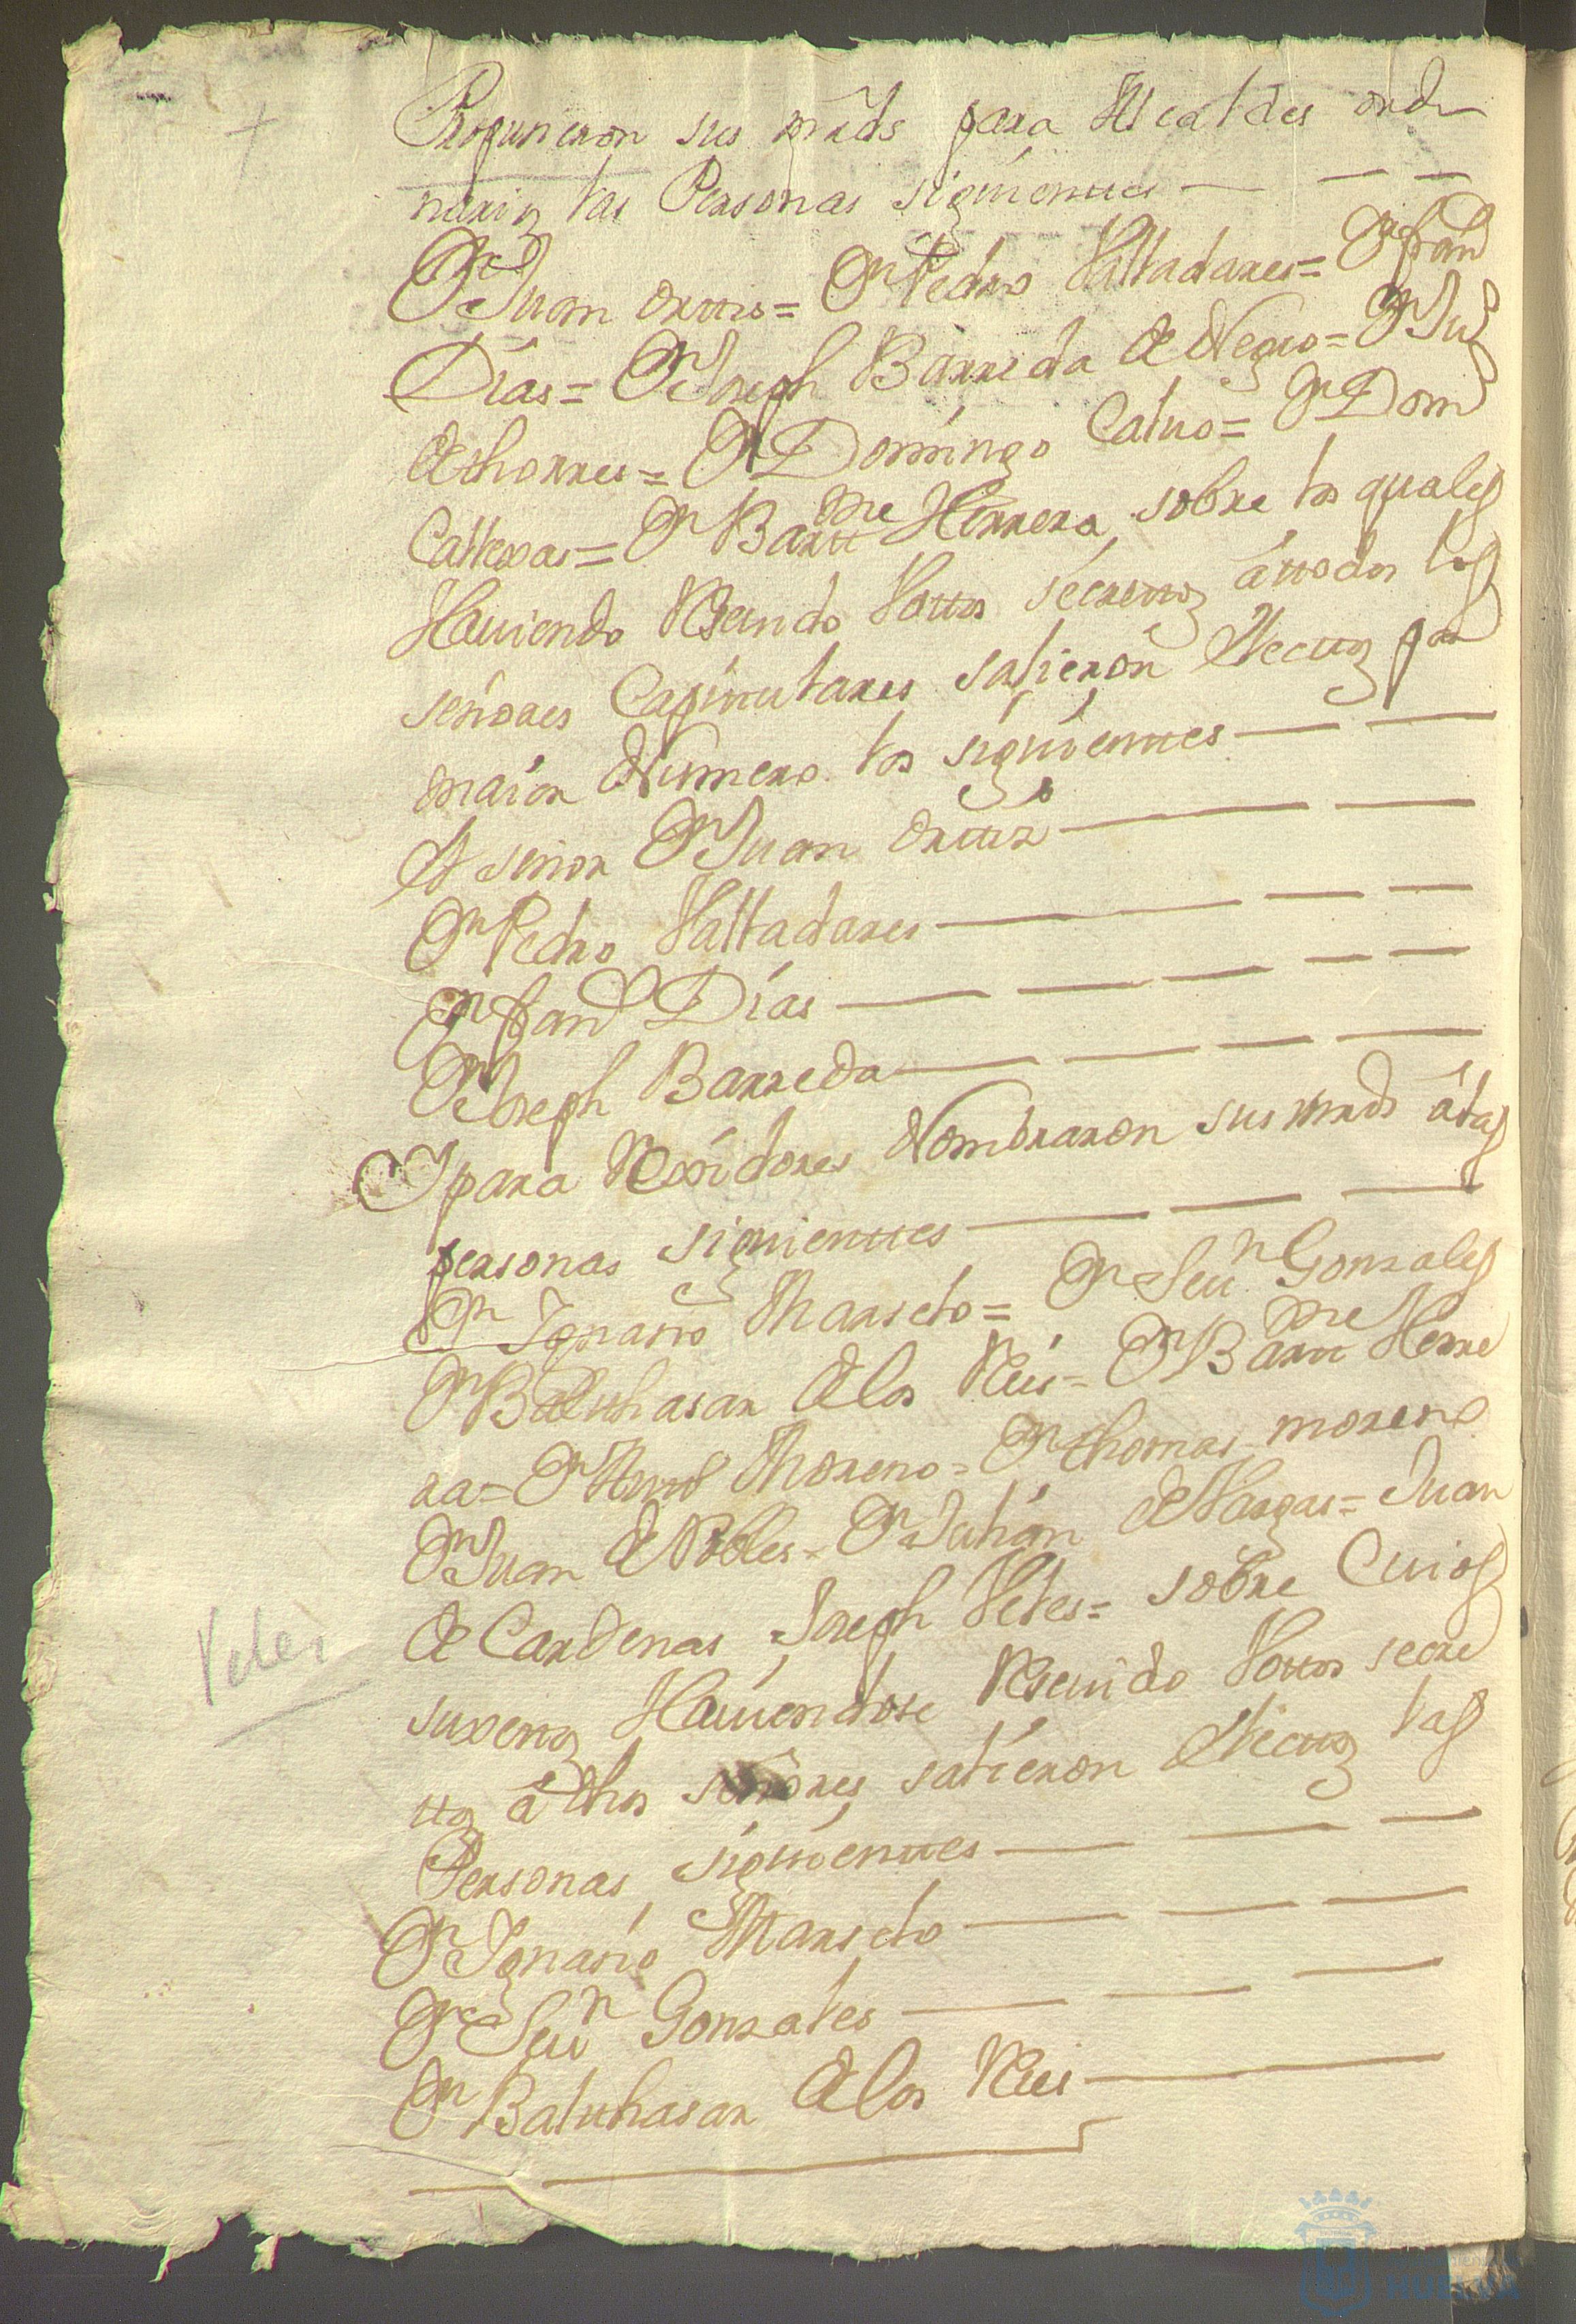 Propusieron sus mrds para Alcaldes ordi
narios las Personas siguienttes
Dn Juan Orttis = Dn Pedro Valladares = Dn Franco
Dias = Dn Joseph Barreda de Negro = Dn Juo
de thorres = Dn Domingo Caluo = Dn Domo
Callexas = Dn Bartme Herrera, sobre los quales
Hauiendo Reseuido Vottos secrettos áttodos los
señores Capitulares salieron Electtos por
maior Numero los siguienttes
El señor Dn Juan Orttiz
Dn Pedro Valladares
Dn Franco Dias
Dn Joseph Barreda
Y para Rexidores Nombraron sus mrds álas
personas siguienttes
Dn Ygnasio Marselo = Dn Seun Gonzales
Dn Baltthasar de los Reies = Dn Barttme Herre
ra = Dn Moreno = Dn thomas moreno
Dn Juan de Robles = Dn Julián de Vargas = Juan
de Cardenas = Joseph Veles = sobre Cuios
suxettos Hauiendose Reseuido Vottos secre
ttos á dhos señores salieron Electtos las
Personas siguienttes
Dn Ygnasio Marselo
Dn Seun Gonzales
Dn Baltthasar de los Reies
Veles